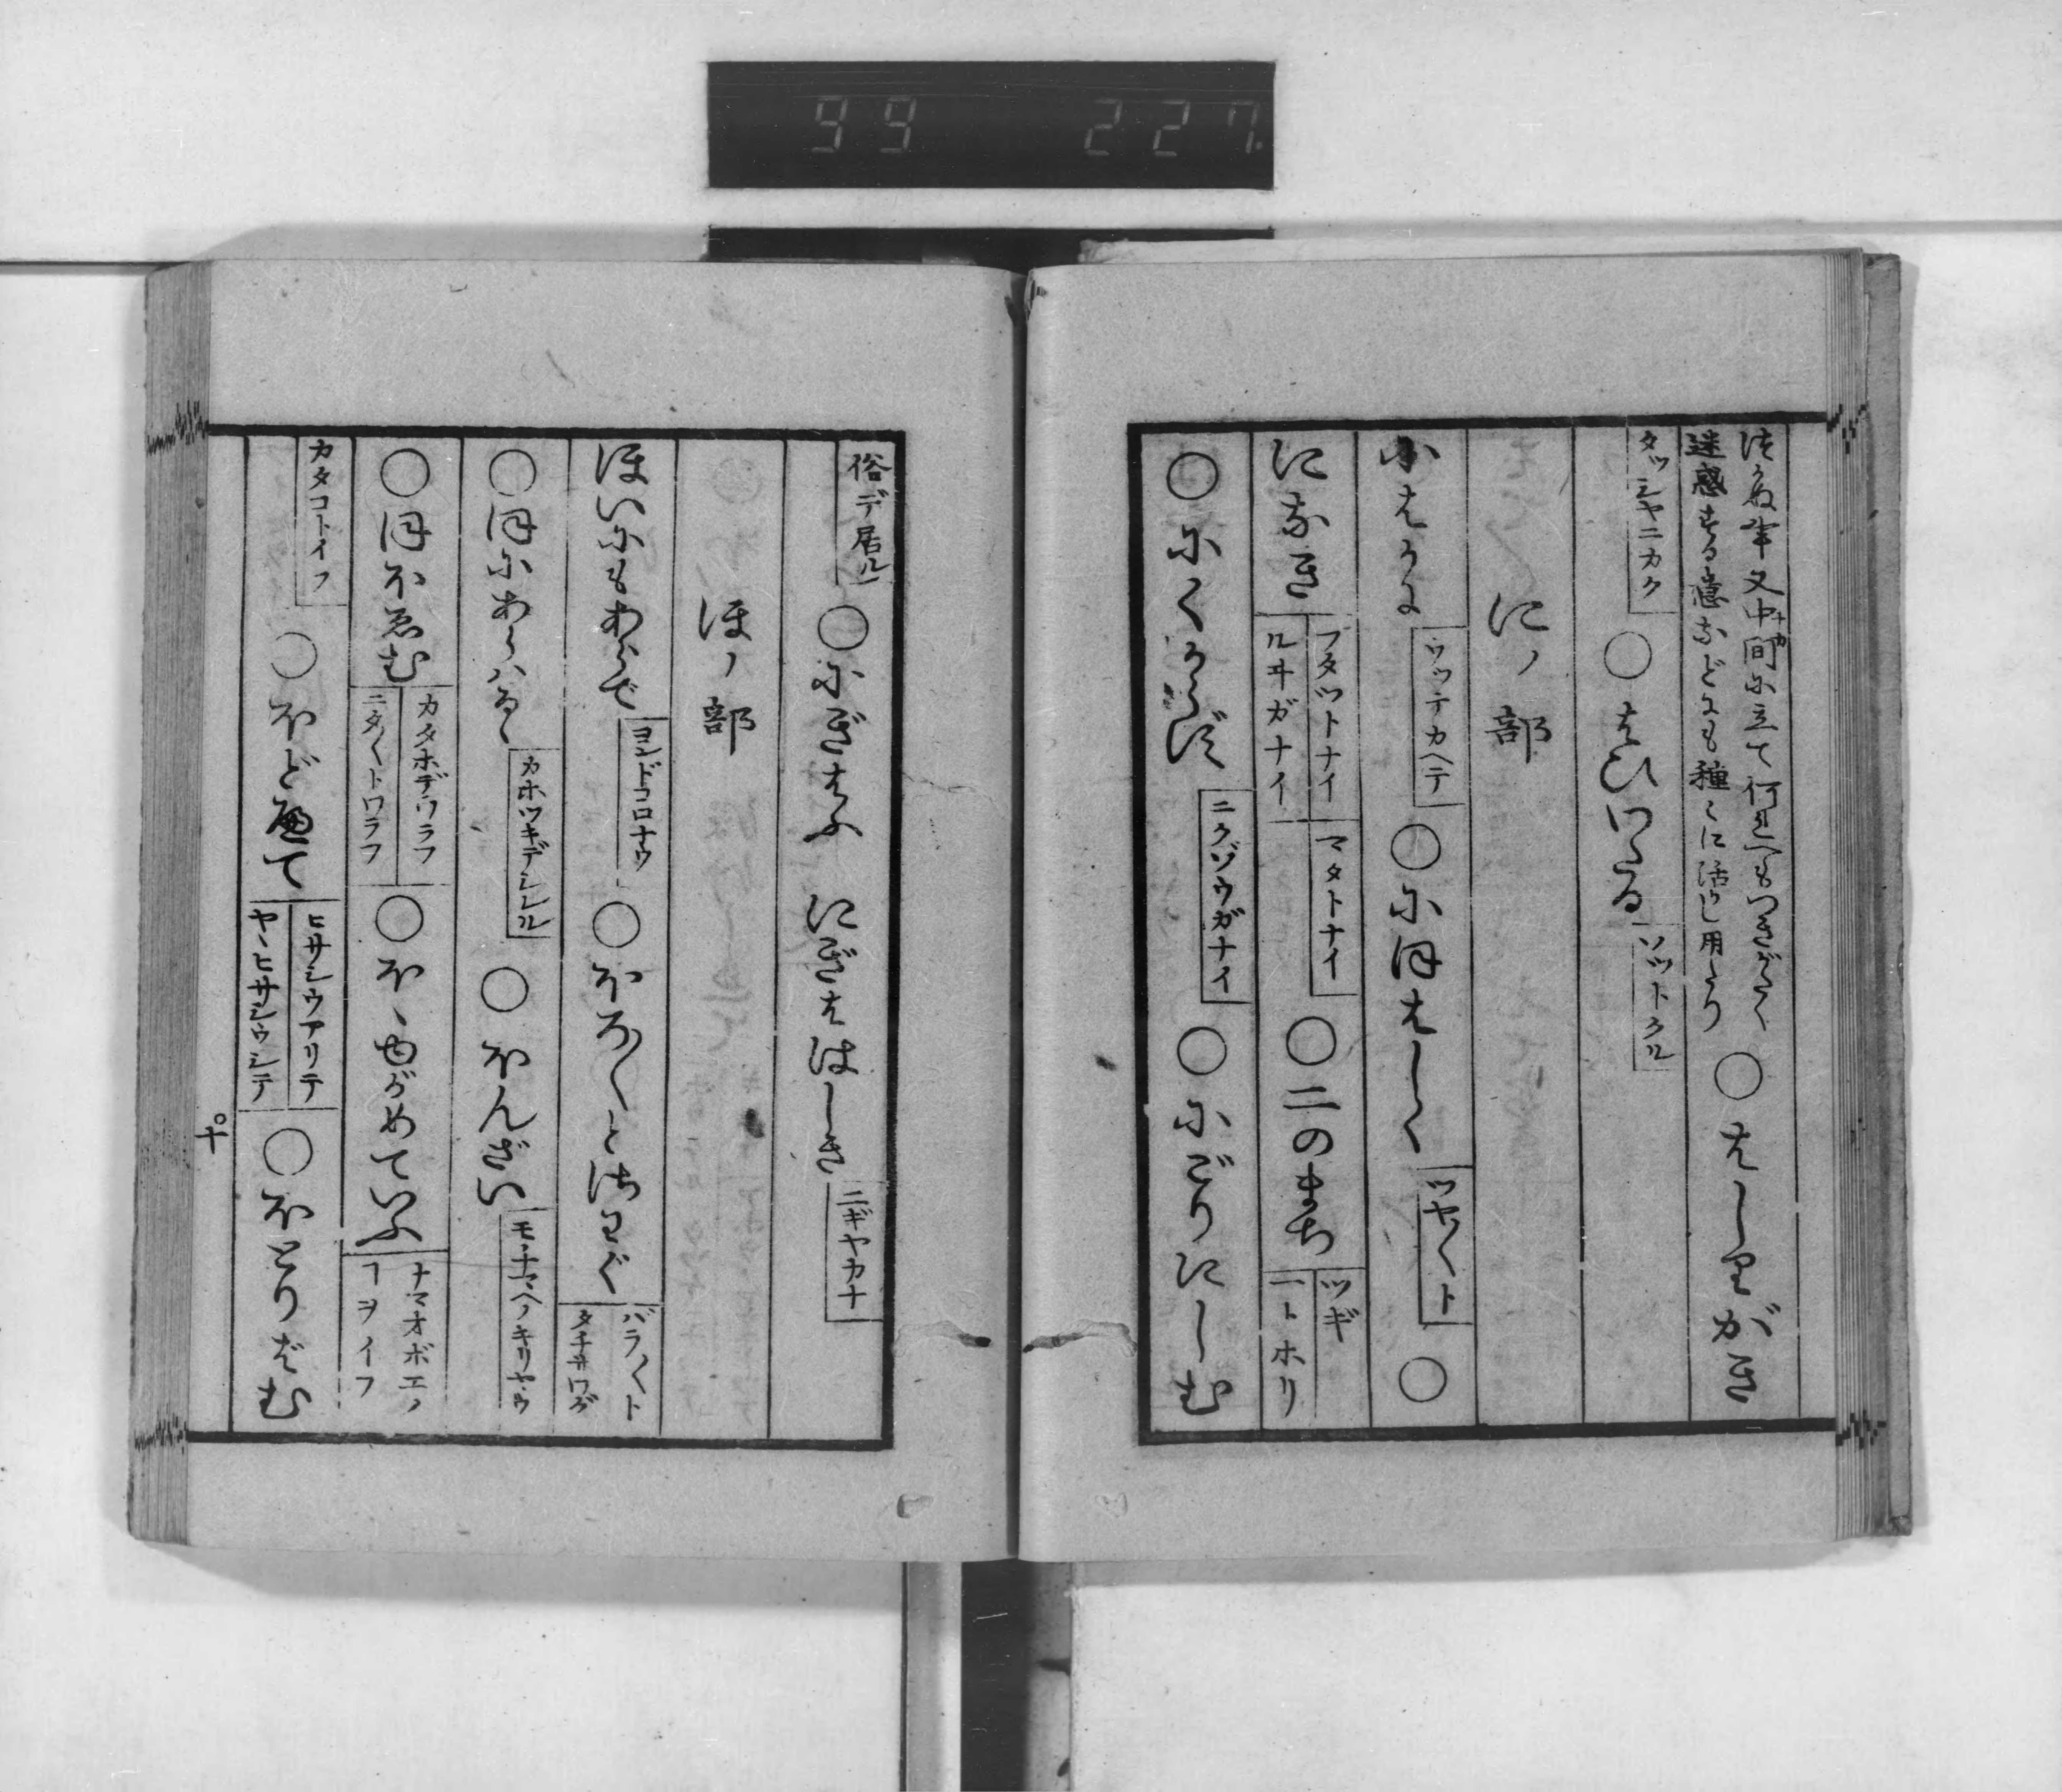 99 227
つかぬ事又中間に立て何れへもつきがたく
迷惑する意などにも種々に活し用たり
○はしりがき
タッシヤニカク
○はひいりたる
ソットクル
にノ部
にはかに
ウッテカヘテ
○にほはしく
ツヤ〱ト
○
になき
フタツトナイ
ルヰガナイ
マタトナイ
○二のまち
ツギ
一トホリ
○にくからず
ニクゾウガナイ
○にごりにしむ
俗デ居ル
○にぎはふ にぎはゝしき
ニギヤカナ
ほノ部
ほいにもあらで
ヨンドコロナウ
○ほろ〱とさわぐ
バラ〱ト
タチサワグ
○ほにあらハるゝ
カホツキデシレル
○ほんざい
○ほほゑむ
カタホデワラフ
ニタ〱トワラフ
○ほゝゆがめていふ
ナマオボエノ
ヿヲイフ
カタコトイフ
○ほどへて
ヒサシウアリテ
ヤヽヒサシウシテ
○ほとりばむ
十